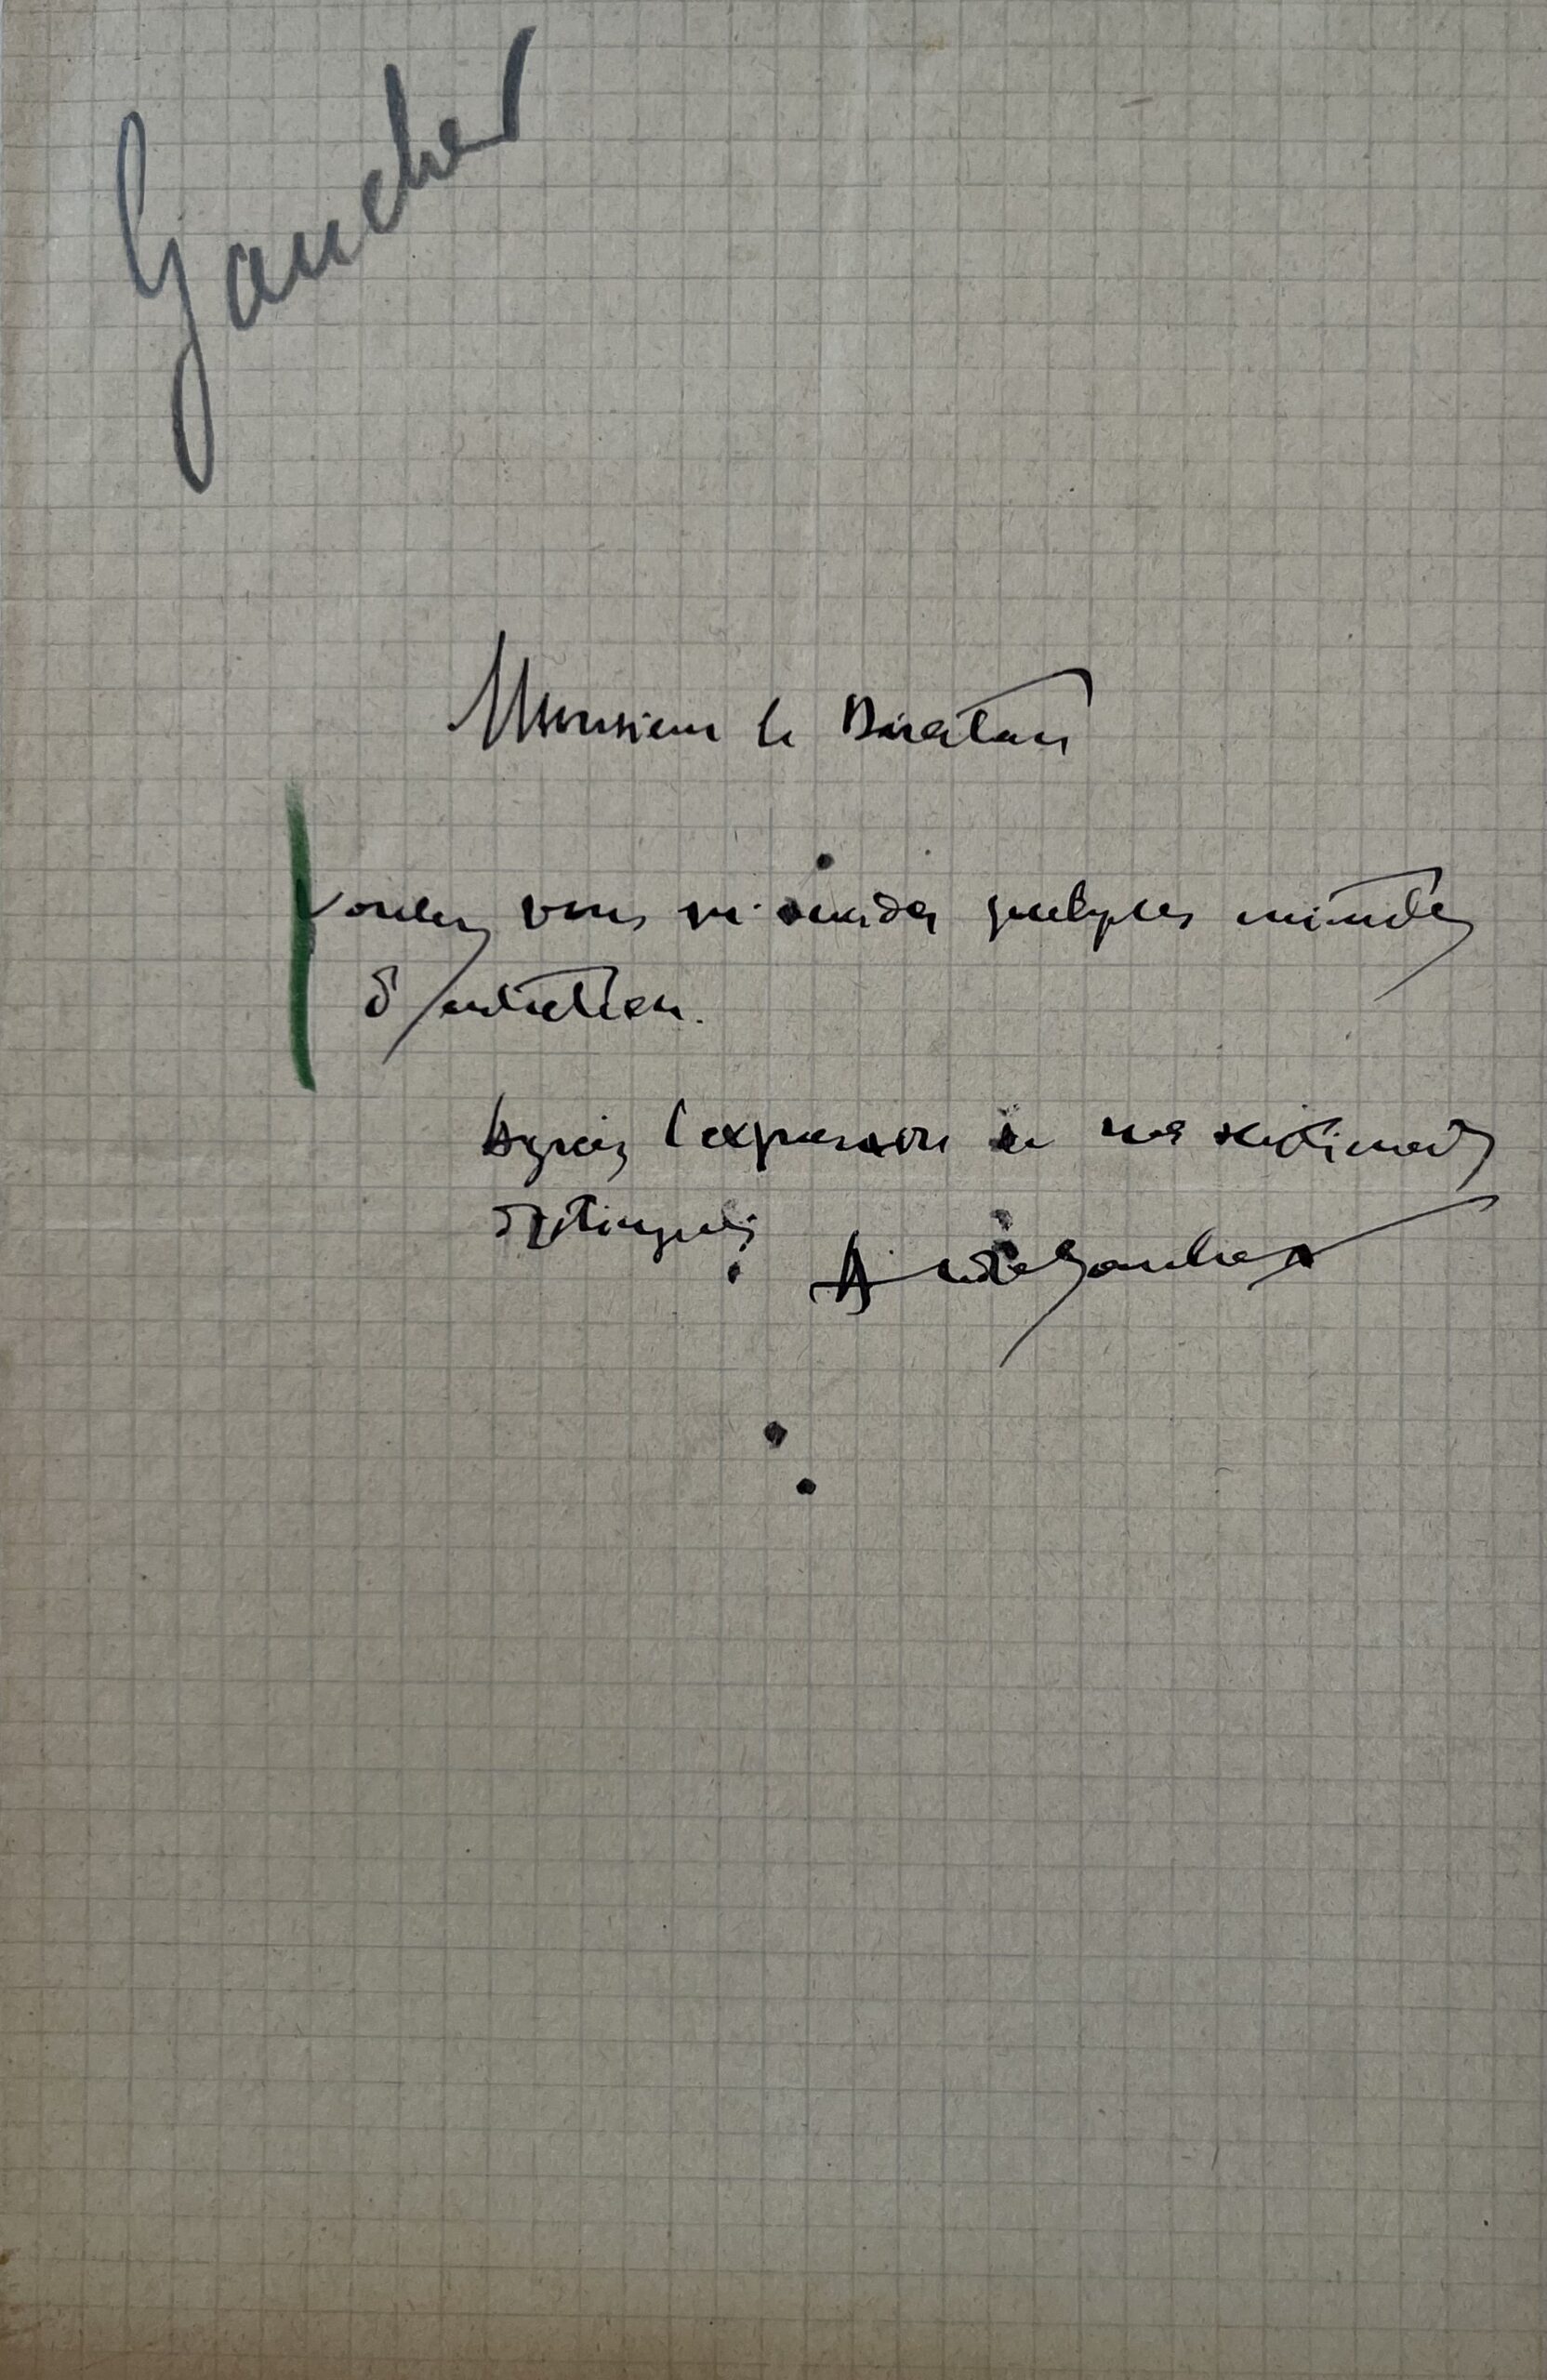 Gaucher
Monsieur le Directeur
Voulez vous m'accorder quelques minutes
d'entretien.
Agréez l'expression de mes sentiments
distingués
André Gaucher